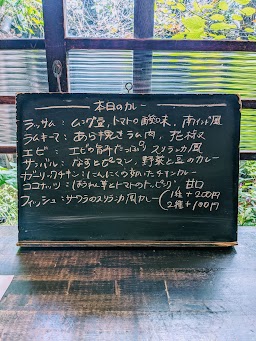 本日のカレー
ラッサム：ムング豆、トマトの酸味、南インド風
ラムキーマ：あら挽きラム肉、花椒
エビ：エビの旨みたっぷり スリランカ風
サンバル：なすとピーマン、野菜と豆のカレー
ガーリックチキン：にんにくの効いたチキンカレー
ココナッツ：ほうれん草とトマトのトッピング、甘口
フィッシュ：サワラのスリランカ風カレー
1種+200円
2種+100円